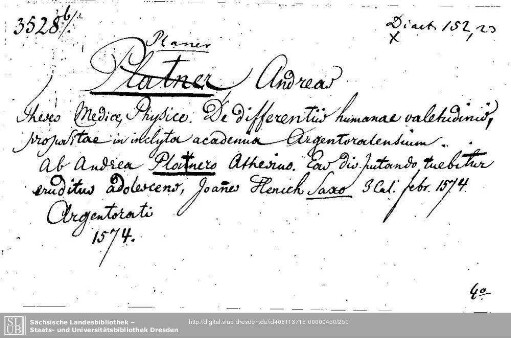 3528 b/.
Diaet. 152, 23
x
Planer
Platner, Andreas
Theses Medicae, Physice. De differentiis humanae valetudinis,
propositae in inclyta academia Argentoratensium.
Ab Andrea Platnero Athesino. Eas disputando tuebitur
eruditus adolescens, Joañes Henich Saxo 3 Cal. febr. 1574
Argentorati
1574.
4º
SLUB
Sächsische Landesbibliothek –
Staats- und Universitätsbibliothek Dresden